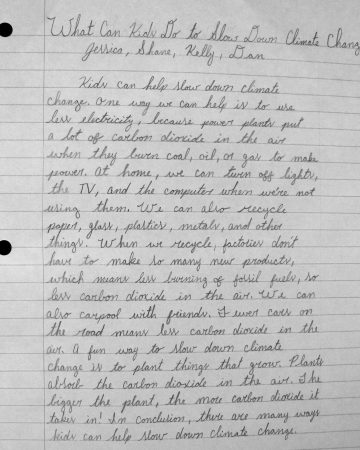 What Can Kids Do to Slow Down Climate Change
Jessica, Shane, Kelly, Dan
Kids can help slow down climate
change. One way we can help is to use
less electricity, because power plants put
a lot of carbon dioxide in the air
when they burn coal, oil, or gas to make
power. At home, we can turn off lights,
the TV, and the computer when we're not
using them. We can also recycle
paper, glass, plastics, metals, and other
things. When we recycle, factories don't
have to make so many new products,
which means less burning of fossil fuels, so
less carbon dioxide in the air. We can
also carpool with friends. Fewer cars on
the road means less carbon dioxide in the
air. A fun way to slow down climate
change is to plant things that grow. Plants
absorb the carbon dioxide in the air. The
bigger the plant, the more carbon dioxide it
takes in! In conclusion, there are many ways
kids can help slow down climate change.